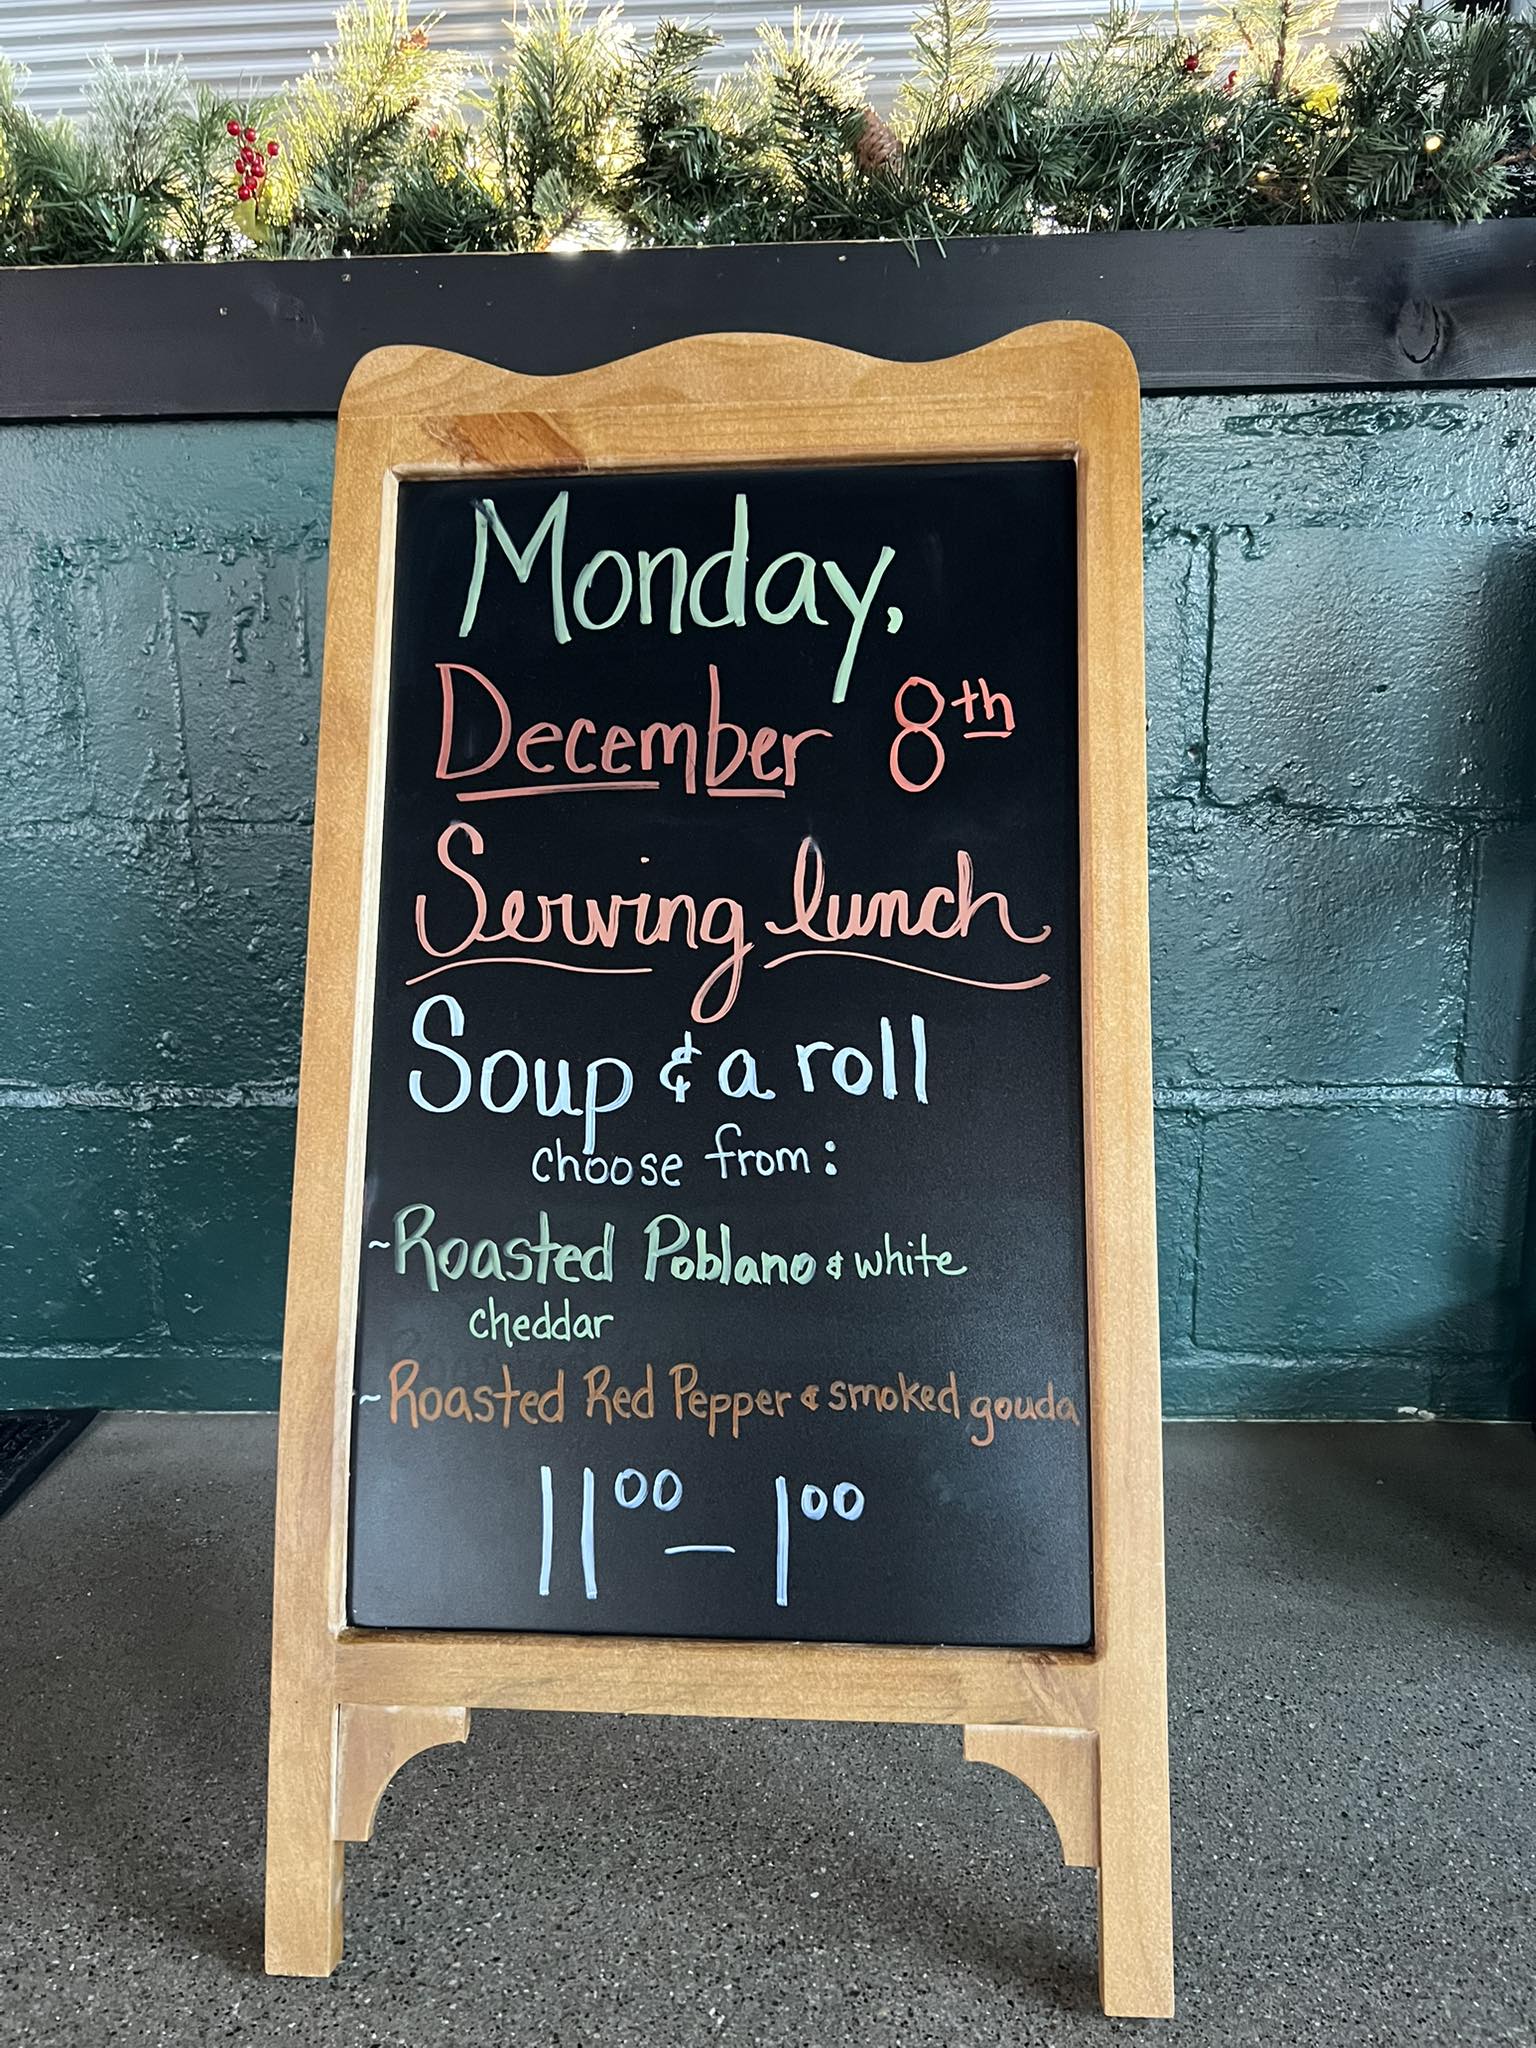 Monday,
December 8th
Serving lunch
Soup & a roll
choose from:
~Roasted Poblano & white
cheddar
~Roasted Red Pepper & smoked gouda
11 00 — 1 00